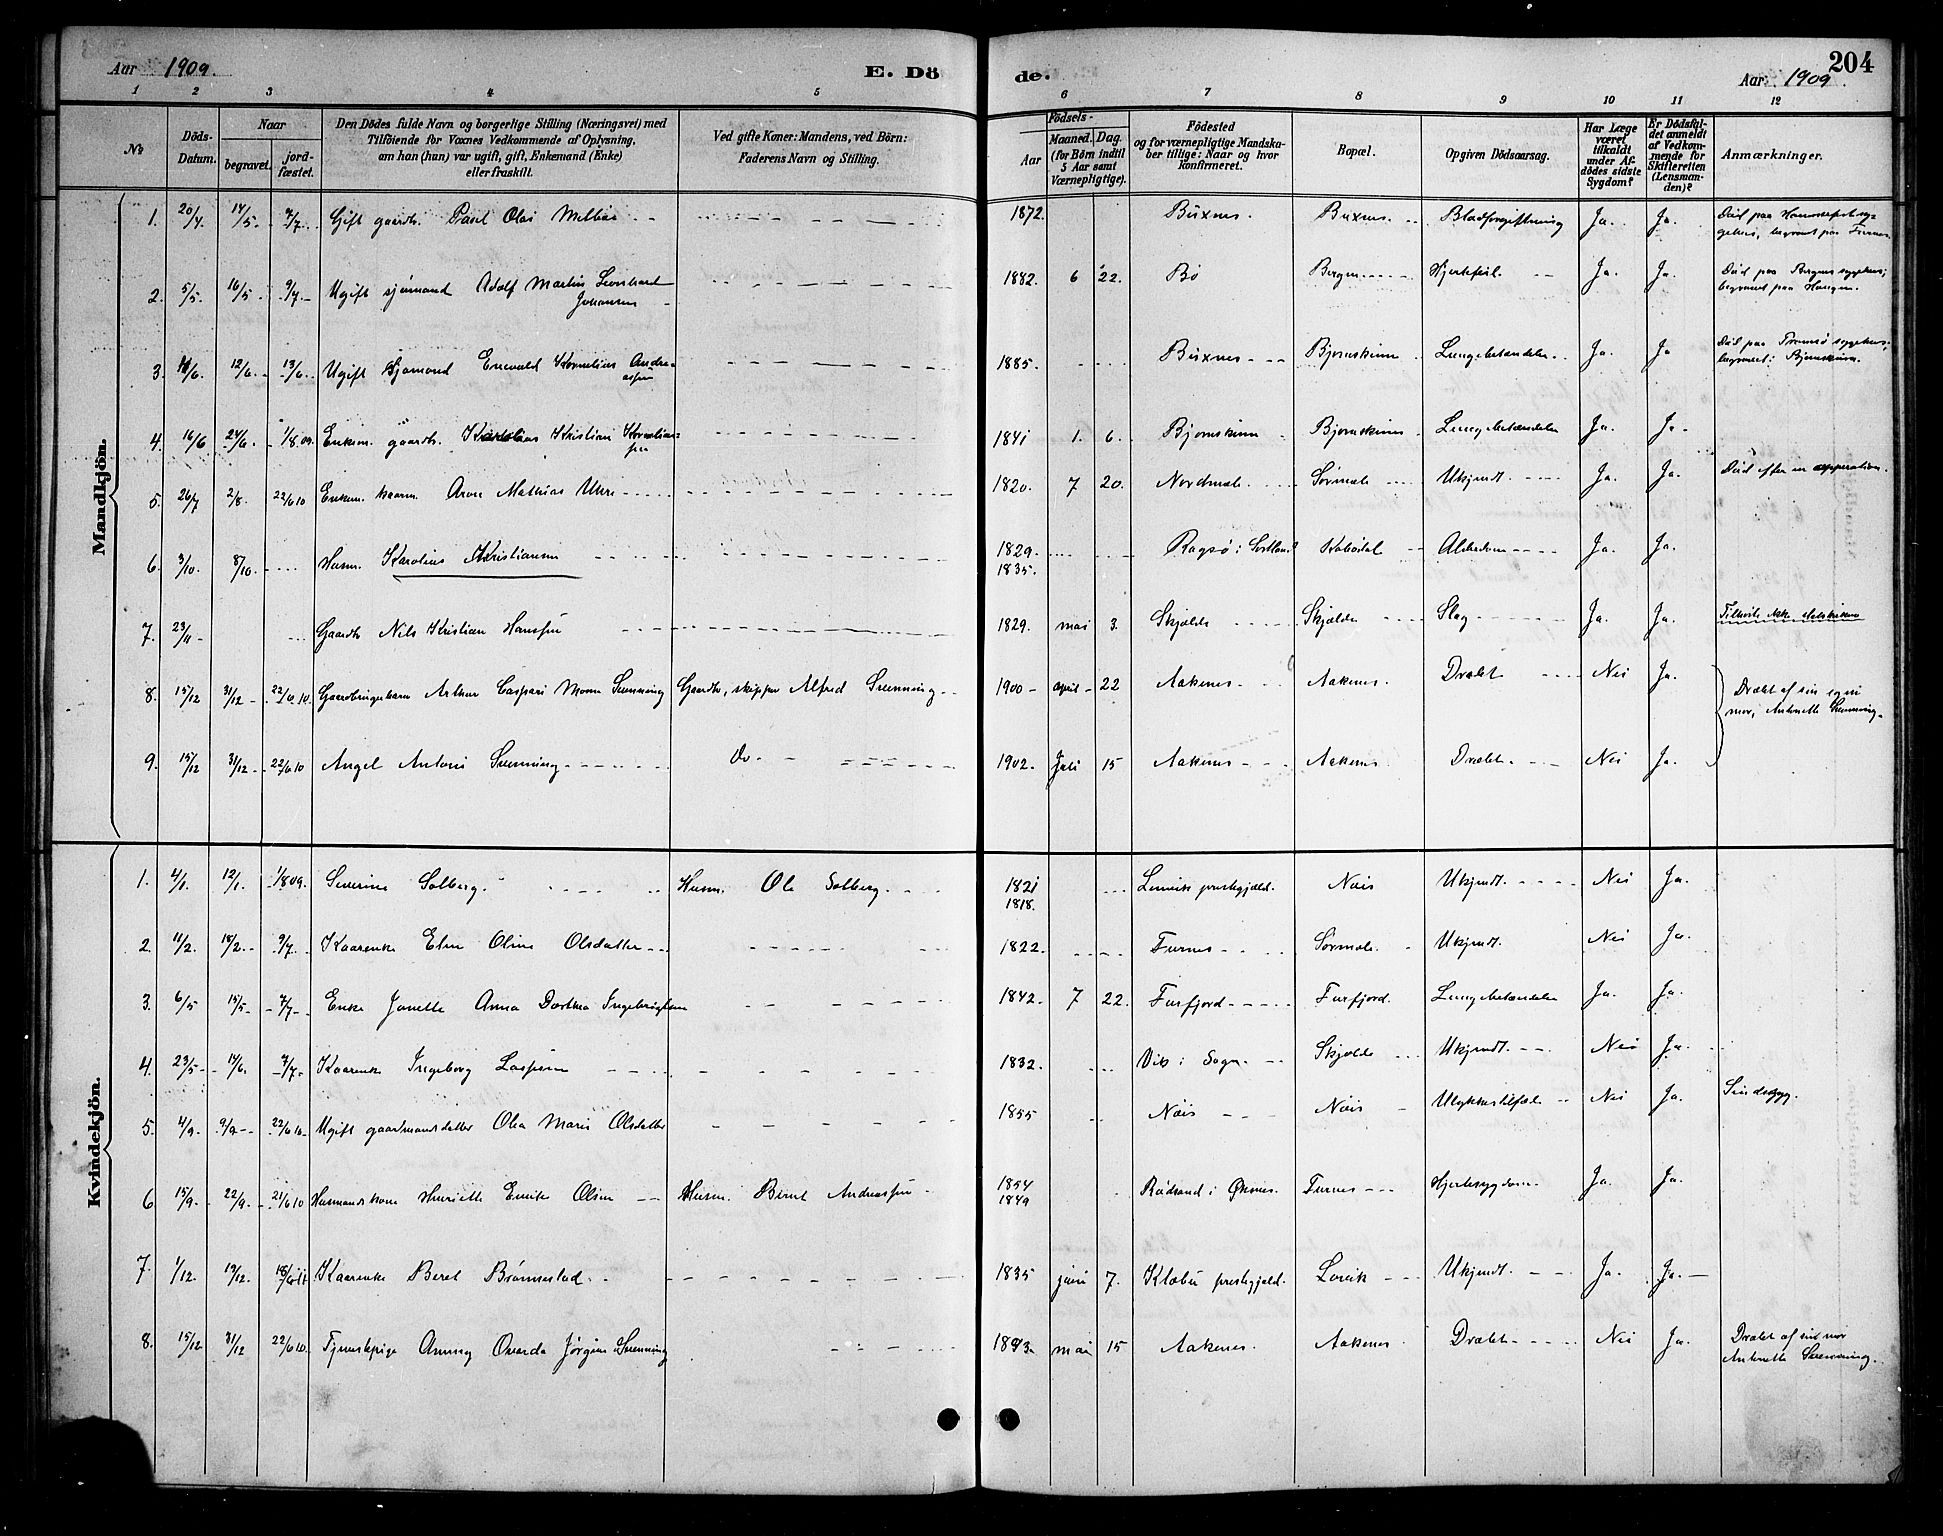 Aar 1909.
E. Dö
de.
Aar 1909
204
1 2 3 4 5 6 7 8 9 10 11 12
No
Döds-Datum.
Naar
begravet.
jord-fæstet.
Den Dödes fulde Navn og borgerlige Stilling (Næringsvei) med
Tilföiende for Voxnes Vedkommende af Oplysning,
om han (hun) var ugift, gift, Enkemand (Enke)
eller fraskilt.
Ved gifte Koner: Mandens, ved Börn:
Faderens Navn og Stilling.
Födsels-
Aar
Maaned. Dag.
(for Börn indtil
5 Aar samt
Værnepligtige).
Födested
og for værnepligtige Mandska-
ber tillige: Naar og hvor
konfirmeret.
Bopæl.
Opgiven Dödsaarsag.
Har Læge
været
tilkaldt
under Af-
dødes sidste
Sygdom?
Er Dödsfal-
det anmeldt
af Vedkom-
mende for
Skifteretten
(Lensman-
den)?
Anmærkninger.
Mandkjön.
1. 20/4 14/5 7/7 Gift gaardb. Paul Olai 1872. Buxnes. Buxnes Blodforgiftning Ja. Ja.
2. 5/5 16/5 9/7 Ugift sjömand Adolf Martin Leonhard Johansen 1882. 6 22. Bö Bergen Hjertefeil Ja. Ja. Död paa Bergens sygehus; begravet paa Haugen.
3. 12/6 13/6 Ugift Sjömand Enevald Kornelius Andreassen 1885 Buxnes Bjørnskinn Lungebetændelse Ja. Ja Död paa Tromsö sygehus; begravet i Bjørnskinn.
4. 16/6 24/6 1/8.09. Enkem. gaardb. Kristian Korneliussen 1841 1. 6. Bjørnskinn Bjørnskinn Lungebetændelse Ja. Ja.
5. 26/7 2/8 22/6 10 Enkem. Mathias 1820. 7 20. Nordmele Sörmele Ukjendt Ja. Ja. Död efter en operation.
6. 3/10. 8/10. Husm. Karolius Kristiansen 1829. 1835. i Sortland Alderdom Ja. Ja.
7. 23/11 Gaardb. Nils Kristian Hanssen 1829. mai 3. Skjolde Skjolde Slag Ja. Ja.
8. 15/12 31/12 22/6 10. Arthur Caspari Svenning Gaardb., skipper Alfred Svenning 1900 april 22 Aakenes Aakenes. Dræbt Nei Ja. Dræbt af sin egen mor, Antonette Svenning.
9. 15/12 31/12 22/6 10 Angel Antoni Svenning Do. 1902. Juli 15 Aakenes Aakenes Dræbt. Nei Ja.
Kvindekjön.
1. 4/1. 12/1. 1/8 09. Severine Solberg. Husm. Ole Solberg. 1821 1818. Lenvik prestegjæld. Nöis Ukjendt. Nei Ja.
2. 11/2. 18/2. 9/7. Kaarenke Elen Oline Olsdatter 1822. Furnes Sörmele. Ukjendt. Nei Ja.
3. 6/5 15/5. 7/7 Enke Janette Anna Dorthea Ingebrigtsen 1842. 7 22. Furfjord Furfjord. Lungebetændelse Ja. Ja.
4. 23/5 14/6. 7/7 Kaarenke Ingeborg 1832. Vik i Sogn Skjolde Ukjendt. Nei Ja.
5. 4/9. 9/9 22/6 10 Ugift gaardmandsdatter Olea Marie Olsdatter 1855 Nöis Nöis Ulykkestilfælde Nei Ja. Sindssyg.
6. 15/9. 22/9. 21/6 10 Husmandskone Henriette Emilie Olsen Husm. Bernt Andreassen 1854 1849 Rödsand i Öksnes. Furnes Hjertesygdom. Ja. Ja.
7. 1/12. 19/12. 18/6 11. Kaarenke Beret Brönnestad 1835 juni 7. Klæbu prestegjæld. Lovik Ukjendt. Ja. Ja.
8. 15/12. 31/12 22/6 10. Tjenestepige Amney Ovarda Jørgine Svenning 1893. mai 15 Aakenes. Aakenes Dræbt Nei Ja Dræbt af sin mor Antonette Svenning.